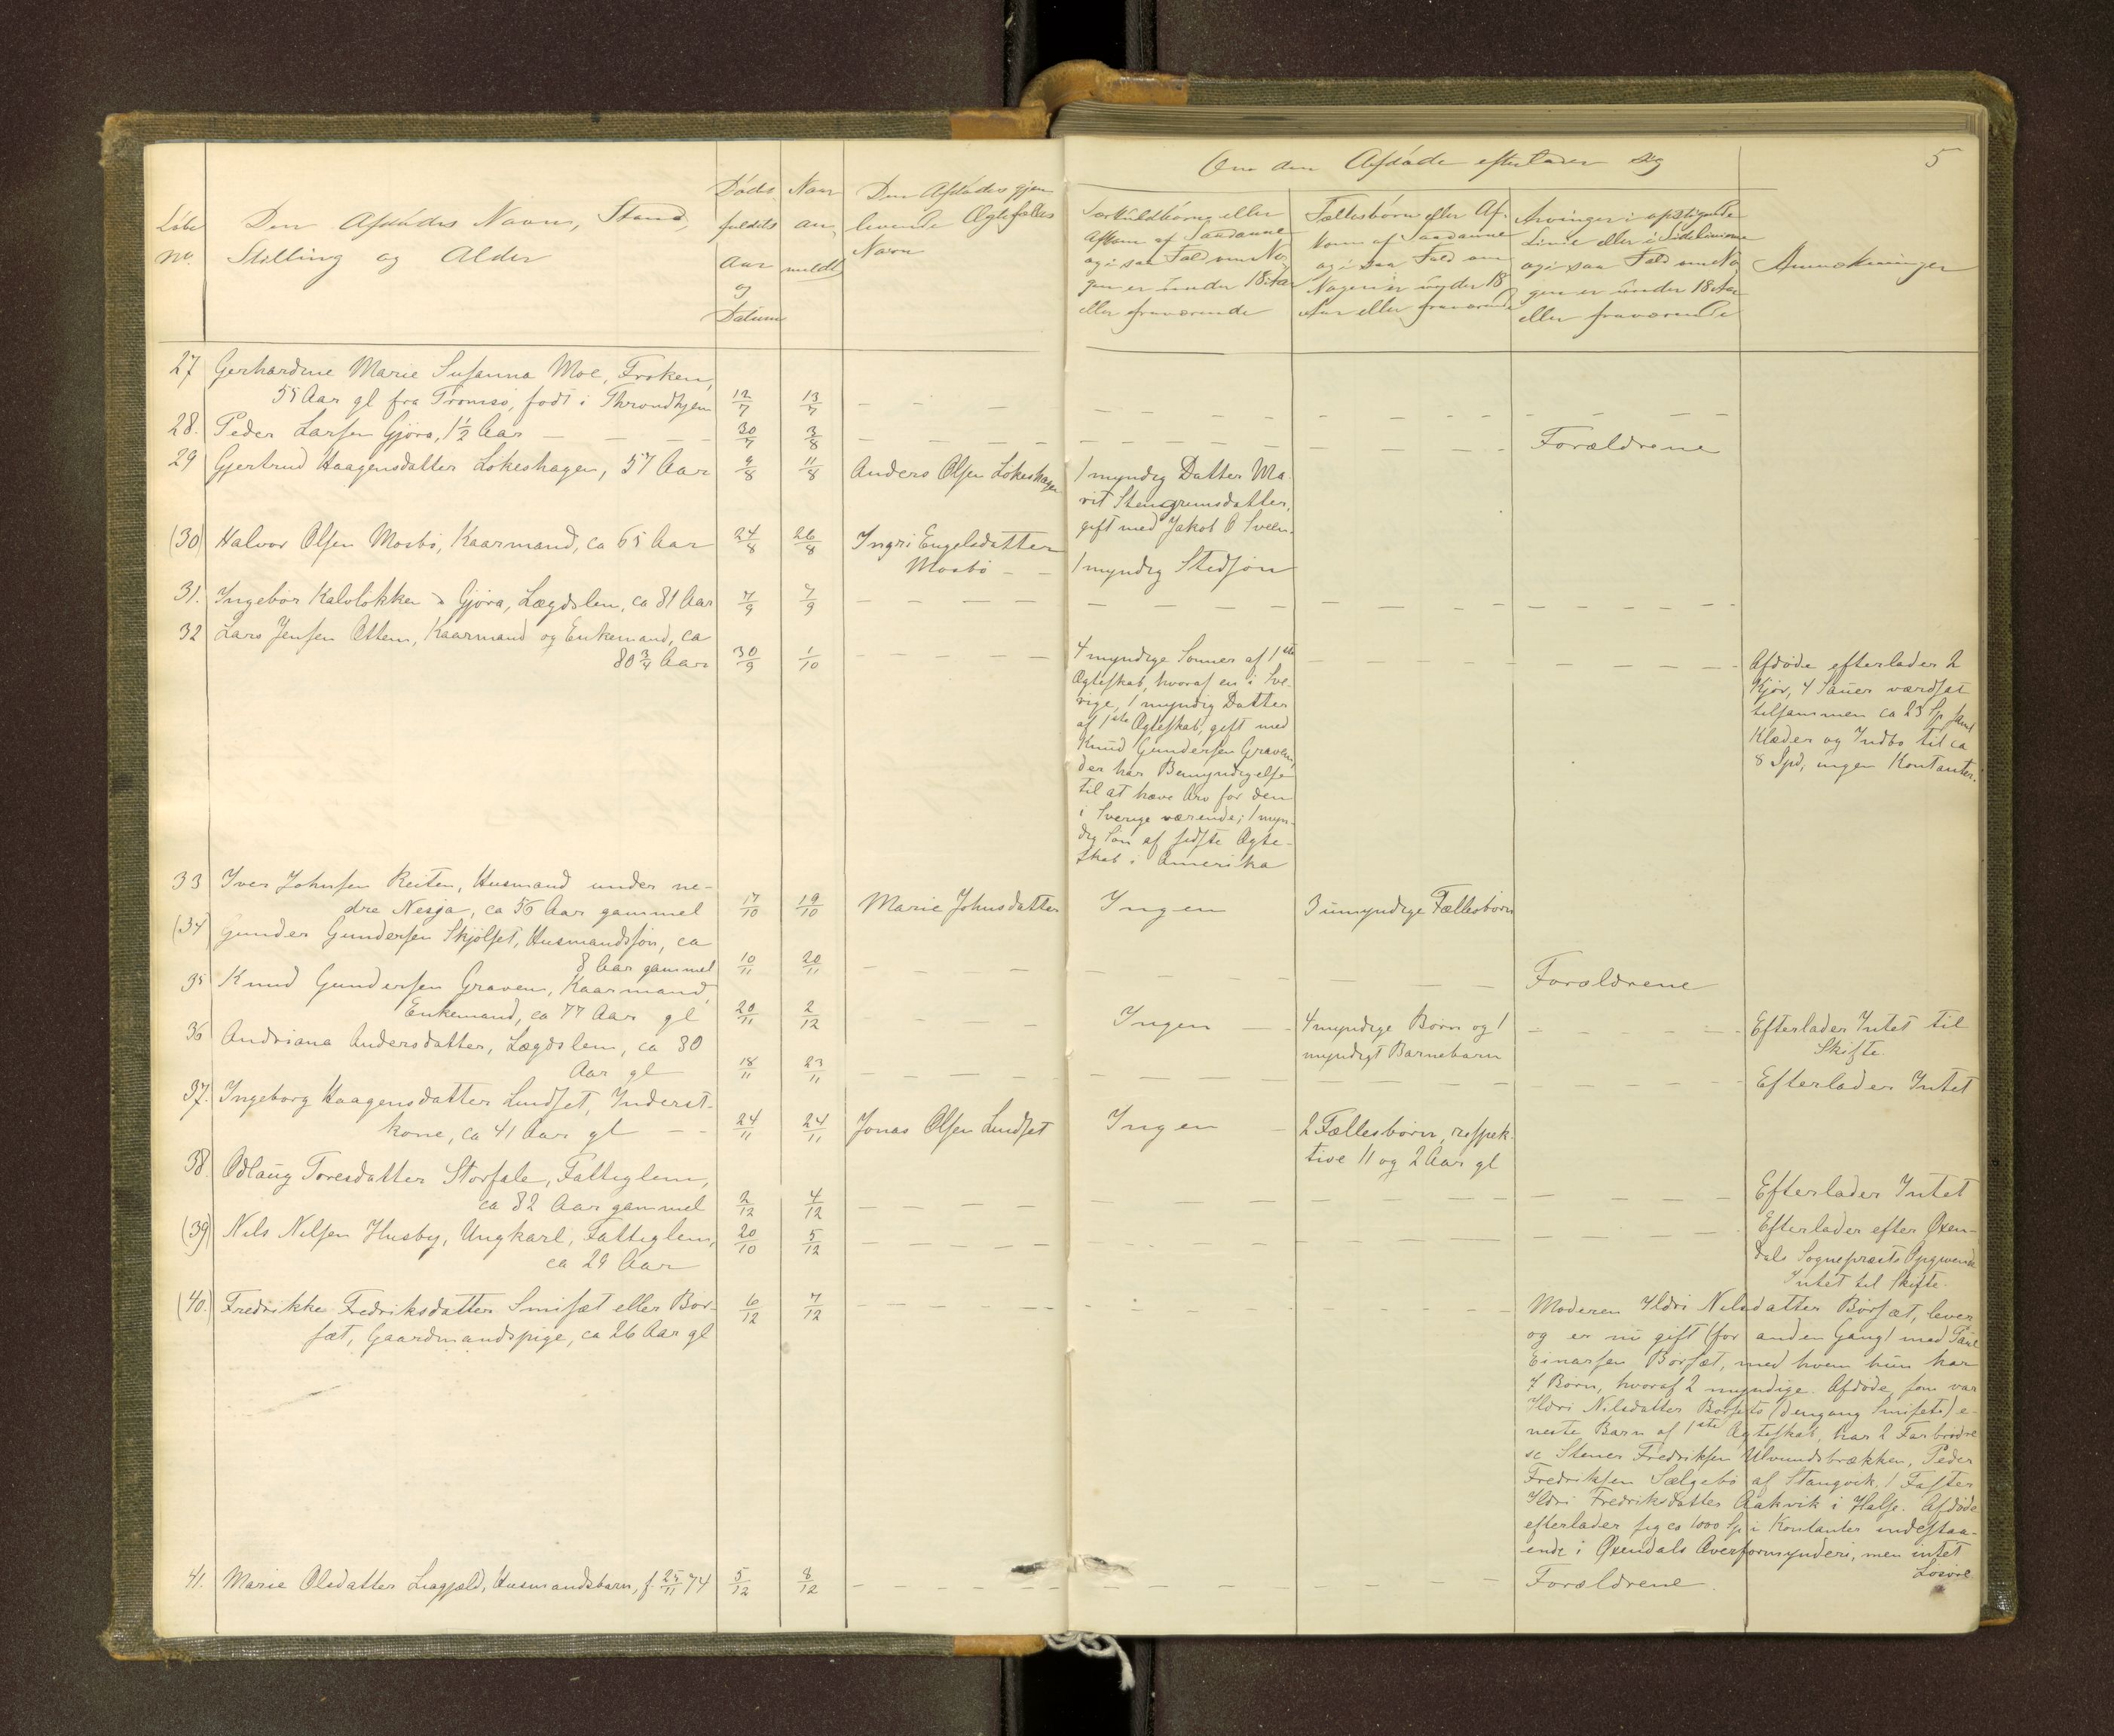 Om den Afdøde efterlader sig
5
Løbe
No.
Den Afdødes Navn, Stand,
Stilling og Alder
Døds
faldets
Aar
og
Datum
Naar
an,
meldt
Den Afdødes gjen
levende Ægtefælles
Navn
Særkuldbørn eller
Afkom af Saadanne
og i saa Fald om No,
gen er under 18 Aar
eller fraværende
Fællesbørn eller Af,
kom af Saadanne
og i saa Fald om
Nogen er under 18
Aar eller fraværende
Arvinger i opstigende
Linie eller i Sidelinierne
og i saa Fald om No,
gen er under 18 Aar
eller fraværende
Anmærkninger
27 Gerhardine Marie Susanna Moe, Frøken,
55 Aar gl fra Tromsø, født i Throndhjem 12/7 13/7
28. Peder Larsen Gjøra, 1½ Aar 30/7 3/8 Forældrene
29 Gjertrud Haagensdatter Løkeshagen, 57 Aar 9/8 11/8 Anders Olsen Løkeshagen 1 myndig Datter Ma-
rit Stengrimsdatter,
gift med Jakob O Sveen.
(30) Halvor Olsen Mosbø, Kaarmand, ca 65 Aar 24/8 26/8 Ingri Engelsdatter
Mosbø 1 myndig Stedsøn
31. Ingebor Kalvløkken Gjøra, Lægdslem, ca 81 Aar 7/9 7/9
32 Lars Jensen Ottem, Kaarmand og Enkemand, ca
80¾ Aar 30/9 1/10
4 myndige Sønner af 1ste
Ægteskab, hvoraf en i Sve-
rige, 1 myndig Datter
af 1ste Ægteskab, gift med
Knud Gundersen Graven,
der har Bemyndigelse
til at hæve Arv for den
i Sverige værende; 1 myn-
dig Søn af sidste Ægte-
skab i Amerika
Afdøde efterlader 2
Kjør, 4 Sauer værdsat
tilsammen ca 23 Sp samt
Klæder og Indbo til ca
8 Spd, ingen Kontanter.
33 Iver Johnsen Reiten, Husmand under ne-
dre Nesja, ca 56 Aar gammel 17/10 19/10 Marie Johnsdatter Ingen 3 umyndige Fællesbørn
(34) Gunder Gundersen Skjølset, Husmandssøn, ca
8 Aar gammel 10/11 20/11 Forældrene
35 Knud Gundersen Graven, Kaarmand,
Enkemand, ca 77 Aar gl 20/11 2/12 Ingen 4 myndige Børn og 1
myndigt Barnebarn
Efterlader Intet til
Skifte.
36 Andriana Andersdatter, Lægdslem, ca 80
Aar gl 18/11 23/11 Efterlader Intet
37. Ingeborg Haagensdatter Lindset, Inderst-
kone, ca 41 Aar gl 24/11 24/11 Jonas Olsen Lindset Ingen 2 Fællesbørn, respek-
tive 11 og 2 Aar gl
38. Odlaug Toresdatter Storfale, Fattiglem,
ca 82 Aar gammel 2/12 4/12 Efterlader Intet
(39) Nils Nilsen Husby, Ungkarl, Fattiglem,
ca 29 Aar 20/10 5/12
Efterlader efter Øxen-
dals Sogneprests Opgivende
Intet til Skifte.
(40.) Fredrikke Fredriksdatter Smisæt eller Bor-
sæt, Gaardmandspige, ca 26 Aar gl 6/12 7/12
Moderen Ildri Nilsdatter Børsæt, lever
og er nu gift (for anden Gang) med Paul
Einarsen Børsæt, med hvem hun har
7 Børn, hvoraf 2 myndige. Afdøde, som var
Ildri Nilsdatter Børsets (dengang Smisets) e-
neste Barn af 1ste Ægteskab, har 2 Farbrødre
sc Stener Fredriksen Ulvundsbrækken, Peder
Fredriksen Sælgebø af Stangvik, 1 Faster
Ildri Fredriksdatter Aakvik i Halse. Afdøde
efterlader sig ca 1000 Sp i Kontanter indestaa-
ende i Øxendals Overformynderi, men intet
Løsøre
41. Marie Olsdatter Liagjeld, Husmandsbarn, f. 25/11 74 5/12 8/12 Forældrene.